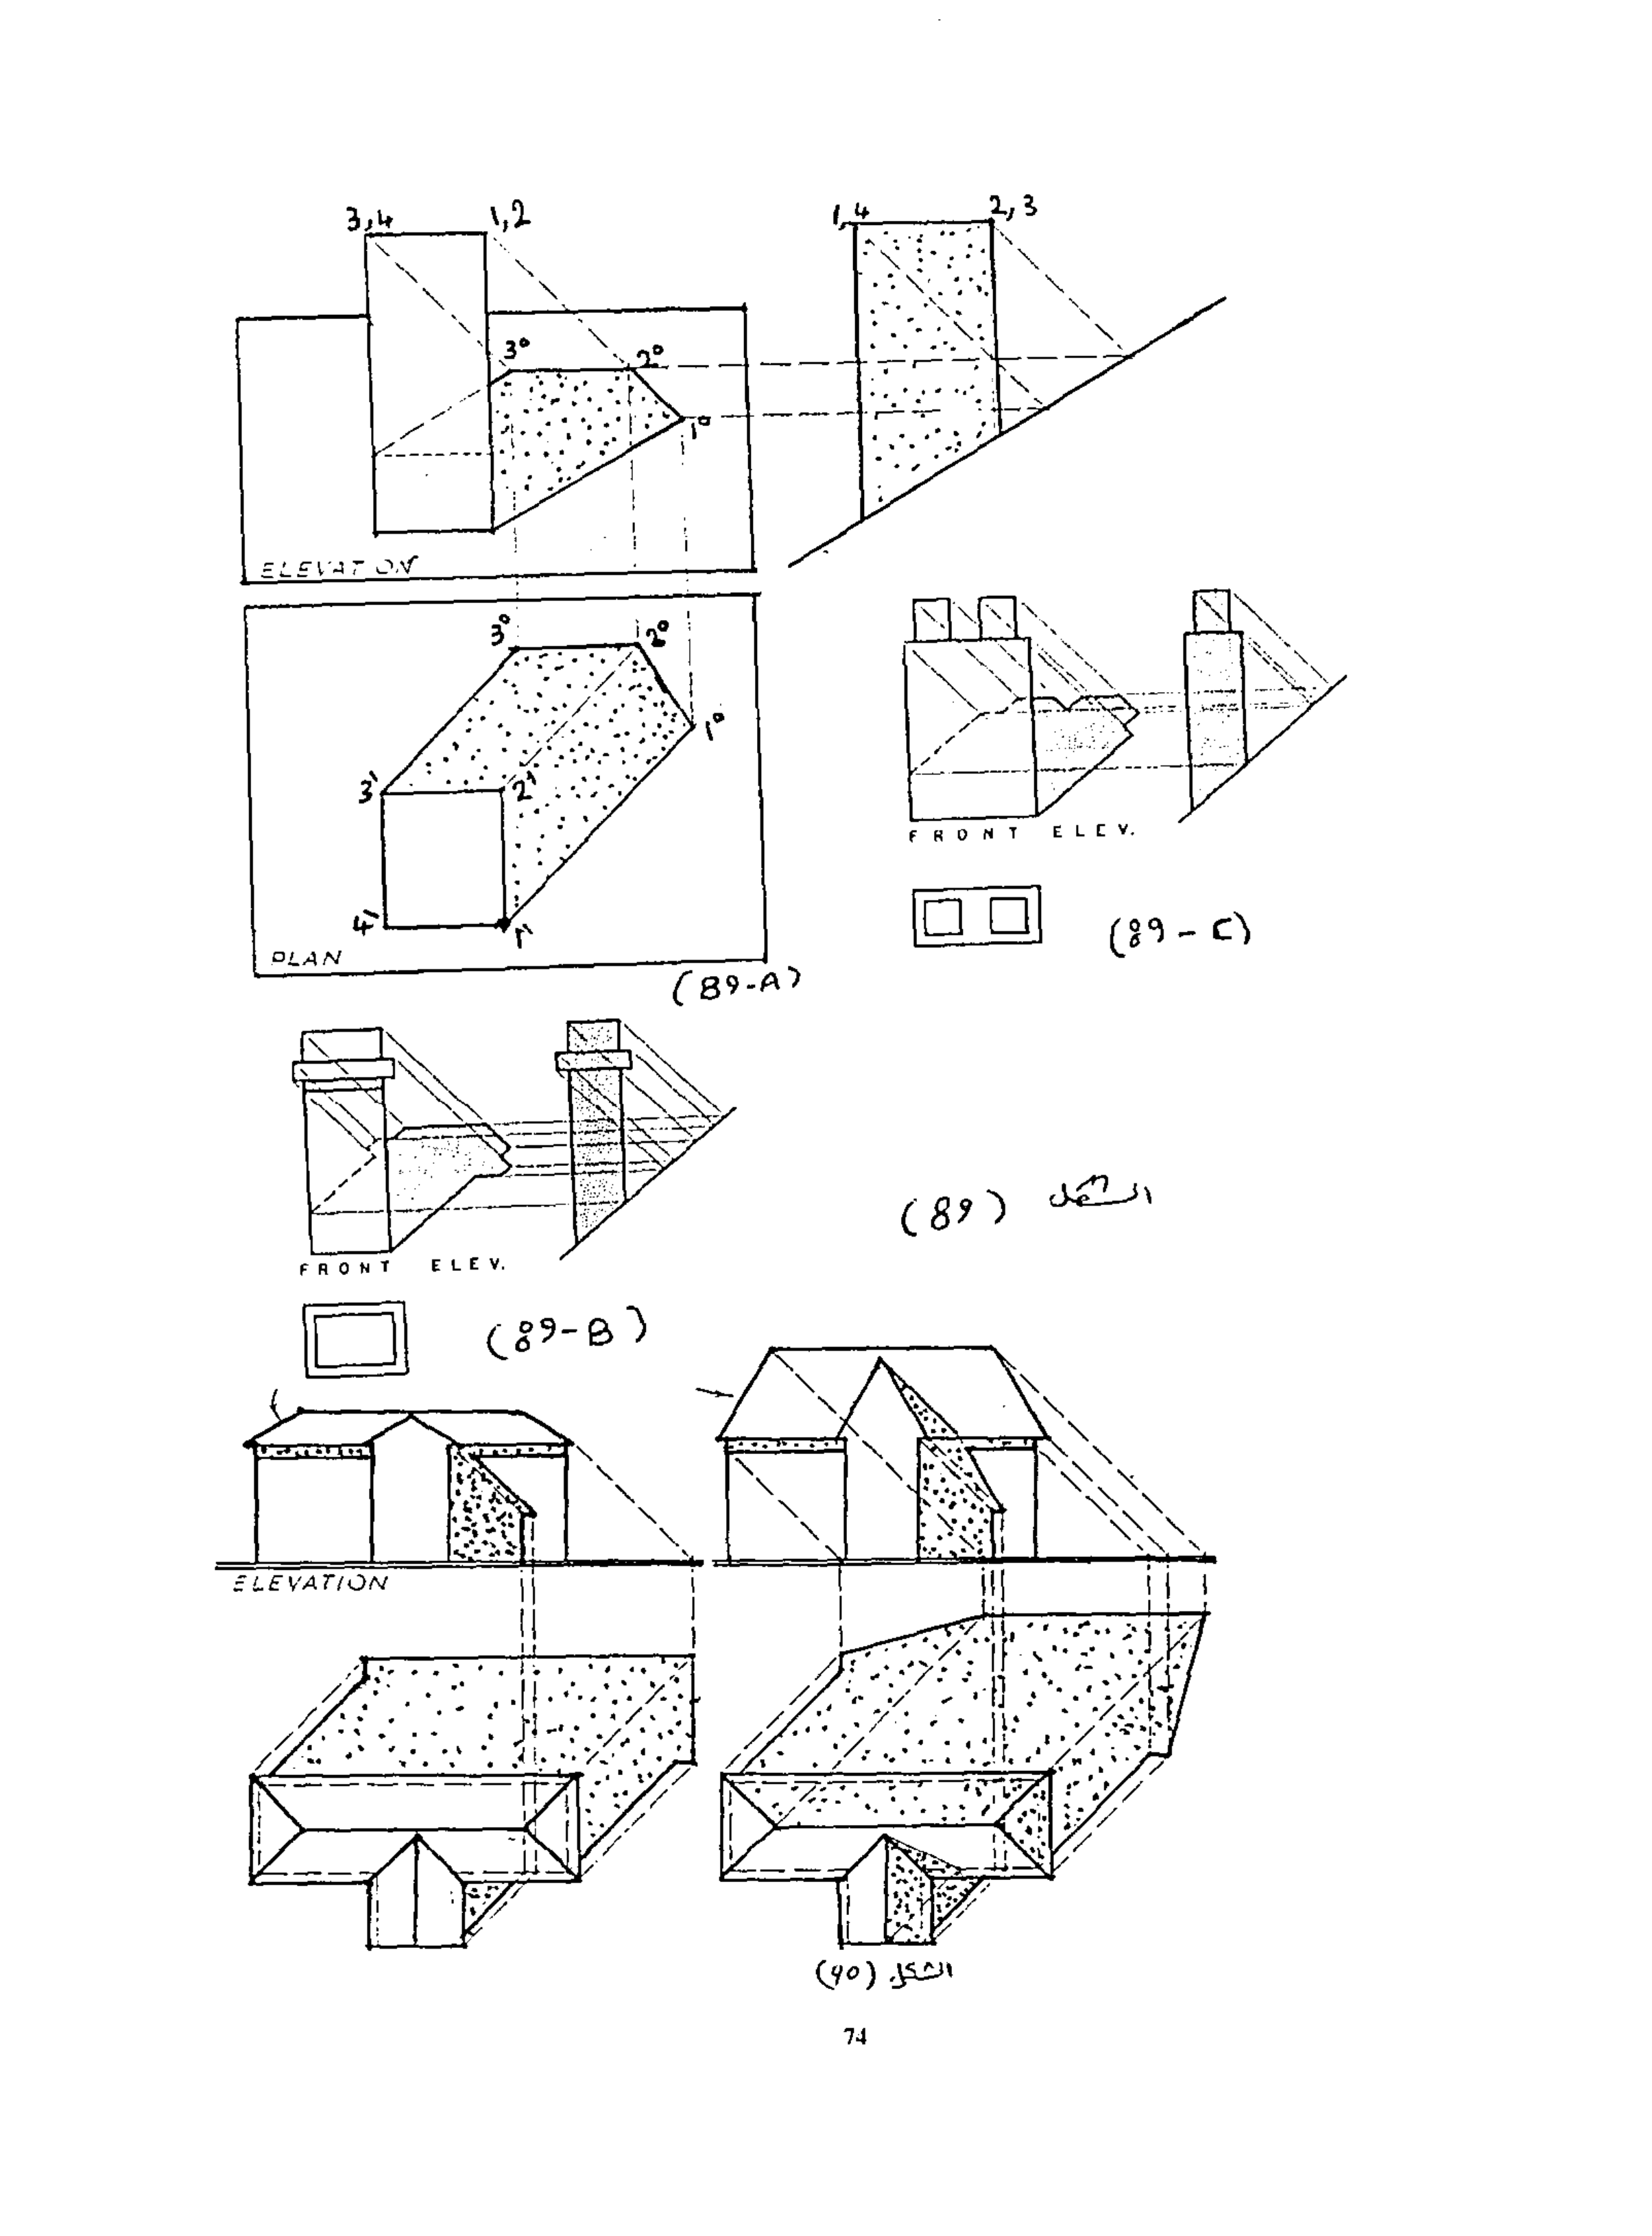 3,4 1,2
1,4 2,3
3° 2°
1°
ELEVATION
3° 2°
1°
3' 2'
4' 1'
PLAN
(89-A)
FRONT ELEV.
(89-C)
FRONT ELEV.
(89-B)
الشكل (89)
ELEVATION
الشكل (90)
74